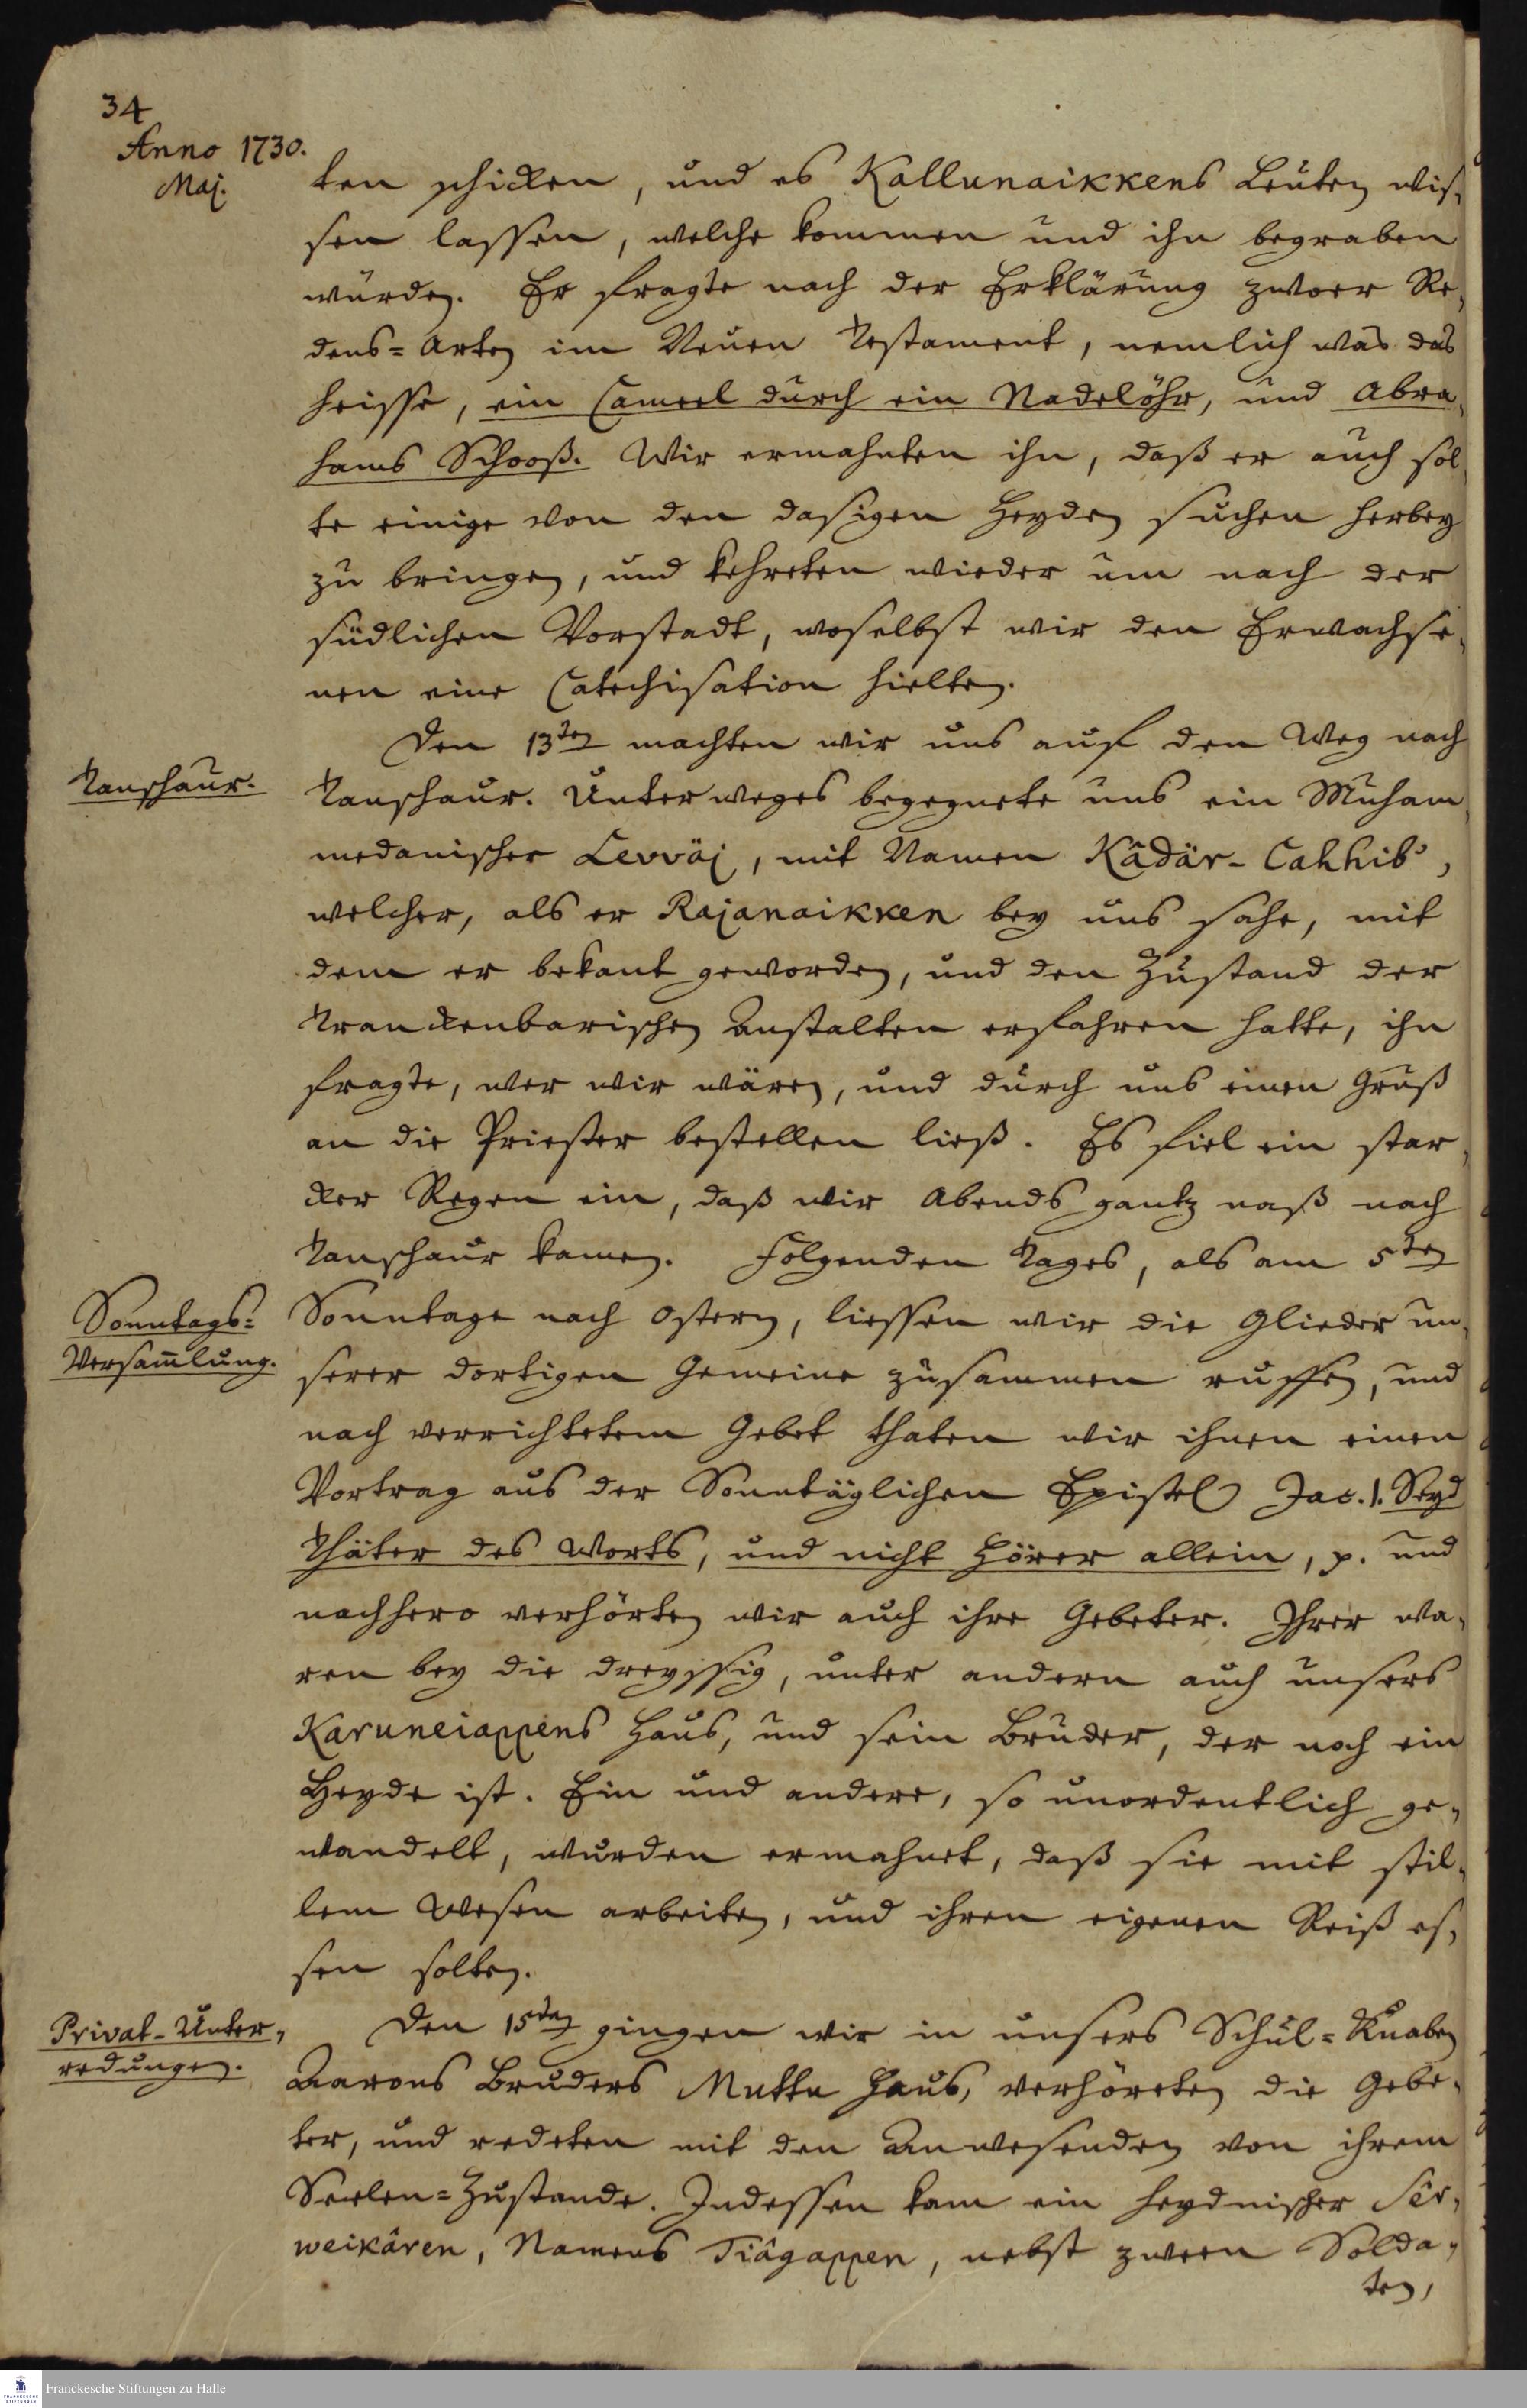 34
Anno 1730.
Maj.
ten schicken, und es Kallunaikkens Leuten wis,
sen lassen, welche kommen und ihn begraben
würden. Er fragte nach der Erklärung zwoer Re,
dens=Arten im Neuen Testament, nemlich was das
heisse, ein Cameel durch ein Nadelöhr, und Abra,
hams Schooß. Wir ermahnten ihn, daß er auch sol,
te einige von den dasigen Heyden suchen herbey
zu bringen, und kehreten wieder um nach der
südlichen Vorstadt, woselbst wir den Erwachse,
nen eine Catechisation hielten.
Den 13ten machten wir uns auf den Weg nach
Tanschaur.
Tanschaur. Unterweges begegnete uns ein Muham,
medanischer Levväj, mit Namen Kâdär-Cahhib,
welcher, als er Rajanaikken bey uns sahe, mit
dem er bekant geworden, und den Zustand der
Tranckenbarischen Anstalten erfahren hatte, ihn
fragte, wer wir wären, und durch uns einen Gruß
an die Priester bestellen ließ. Es fiel ein star,
cker Regen ein, daß wir Abends gantz naß nach
Tanschaur kamen. Folgenden Tages, als am 5ten
Sonntags=
Versam̄lung.
Sonntage nach Ostern, liessen wir die Glieder un,
serer dortigen Gemeine zusammen ruffen, und
nach verrichtetem Gebet thaten wir ihnen einen
Vortrag aus der Sonntäglichen Epistel Jac. 1. Seyd
Thäter des Worts, und nicht Hörer allein, p. und
nachhero verhörten wir auch ihre Gebeter. Ihrer wa,
ren bey die dreyssig, unter andern auch unsers
Karuneiappens Haus, und sein Bruder, der noch ein
Heyde ist. Ein und andere, so unordentlich ge,
wandelt, wurden ermahnet, daß sie mit stil,
lem Wesen arbeiten, und ihren eigenen Reiß es,
sen solten.
Privat-Unter,
redungen.
Den 15ten gingen wir in unsers Schul=Knaben
Aarons Bruders Muttu Haus, verhöreten die Gebe,
ter, und redeten mit den Anwesenden von ihrem
Seelen=Zustande. Indessen kam ein heydnischer Sêr,
weikâren, Namens Tiâgappen, nebst zween Solda,
ten,
Franckesche Stiftungen zu Halle